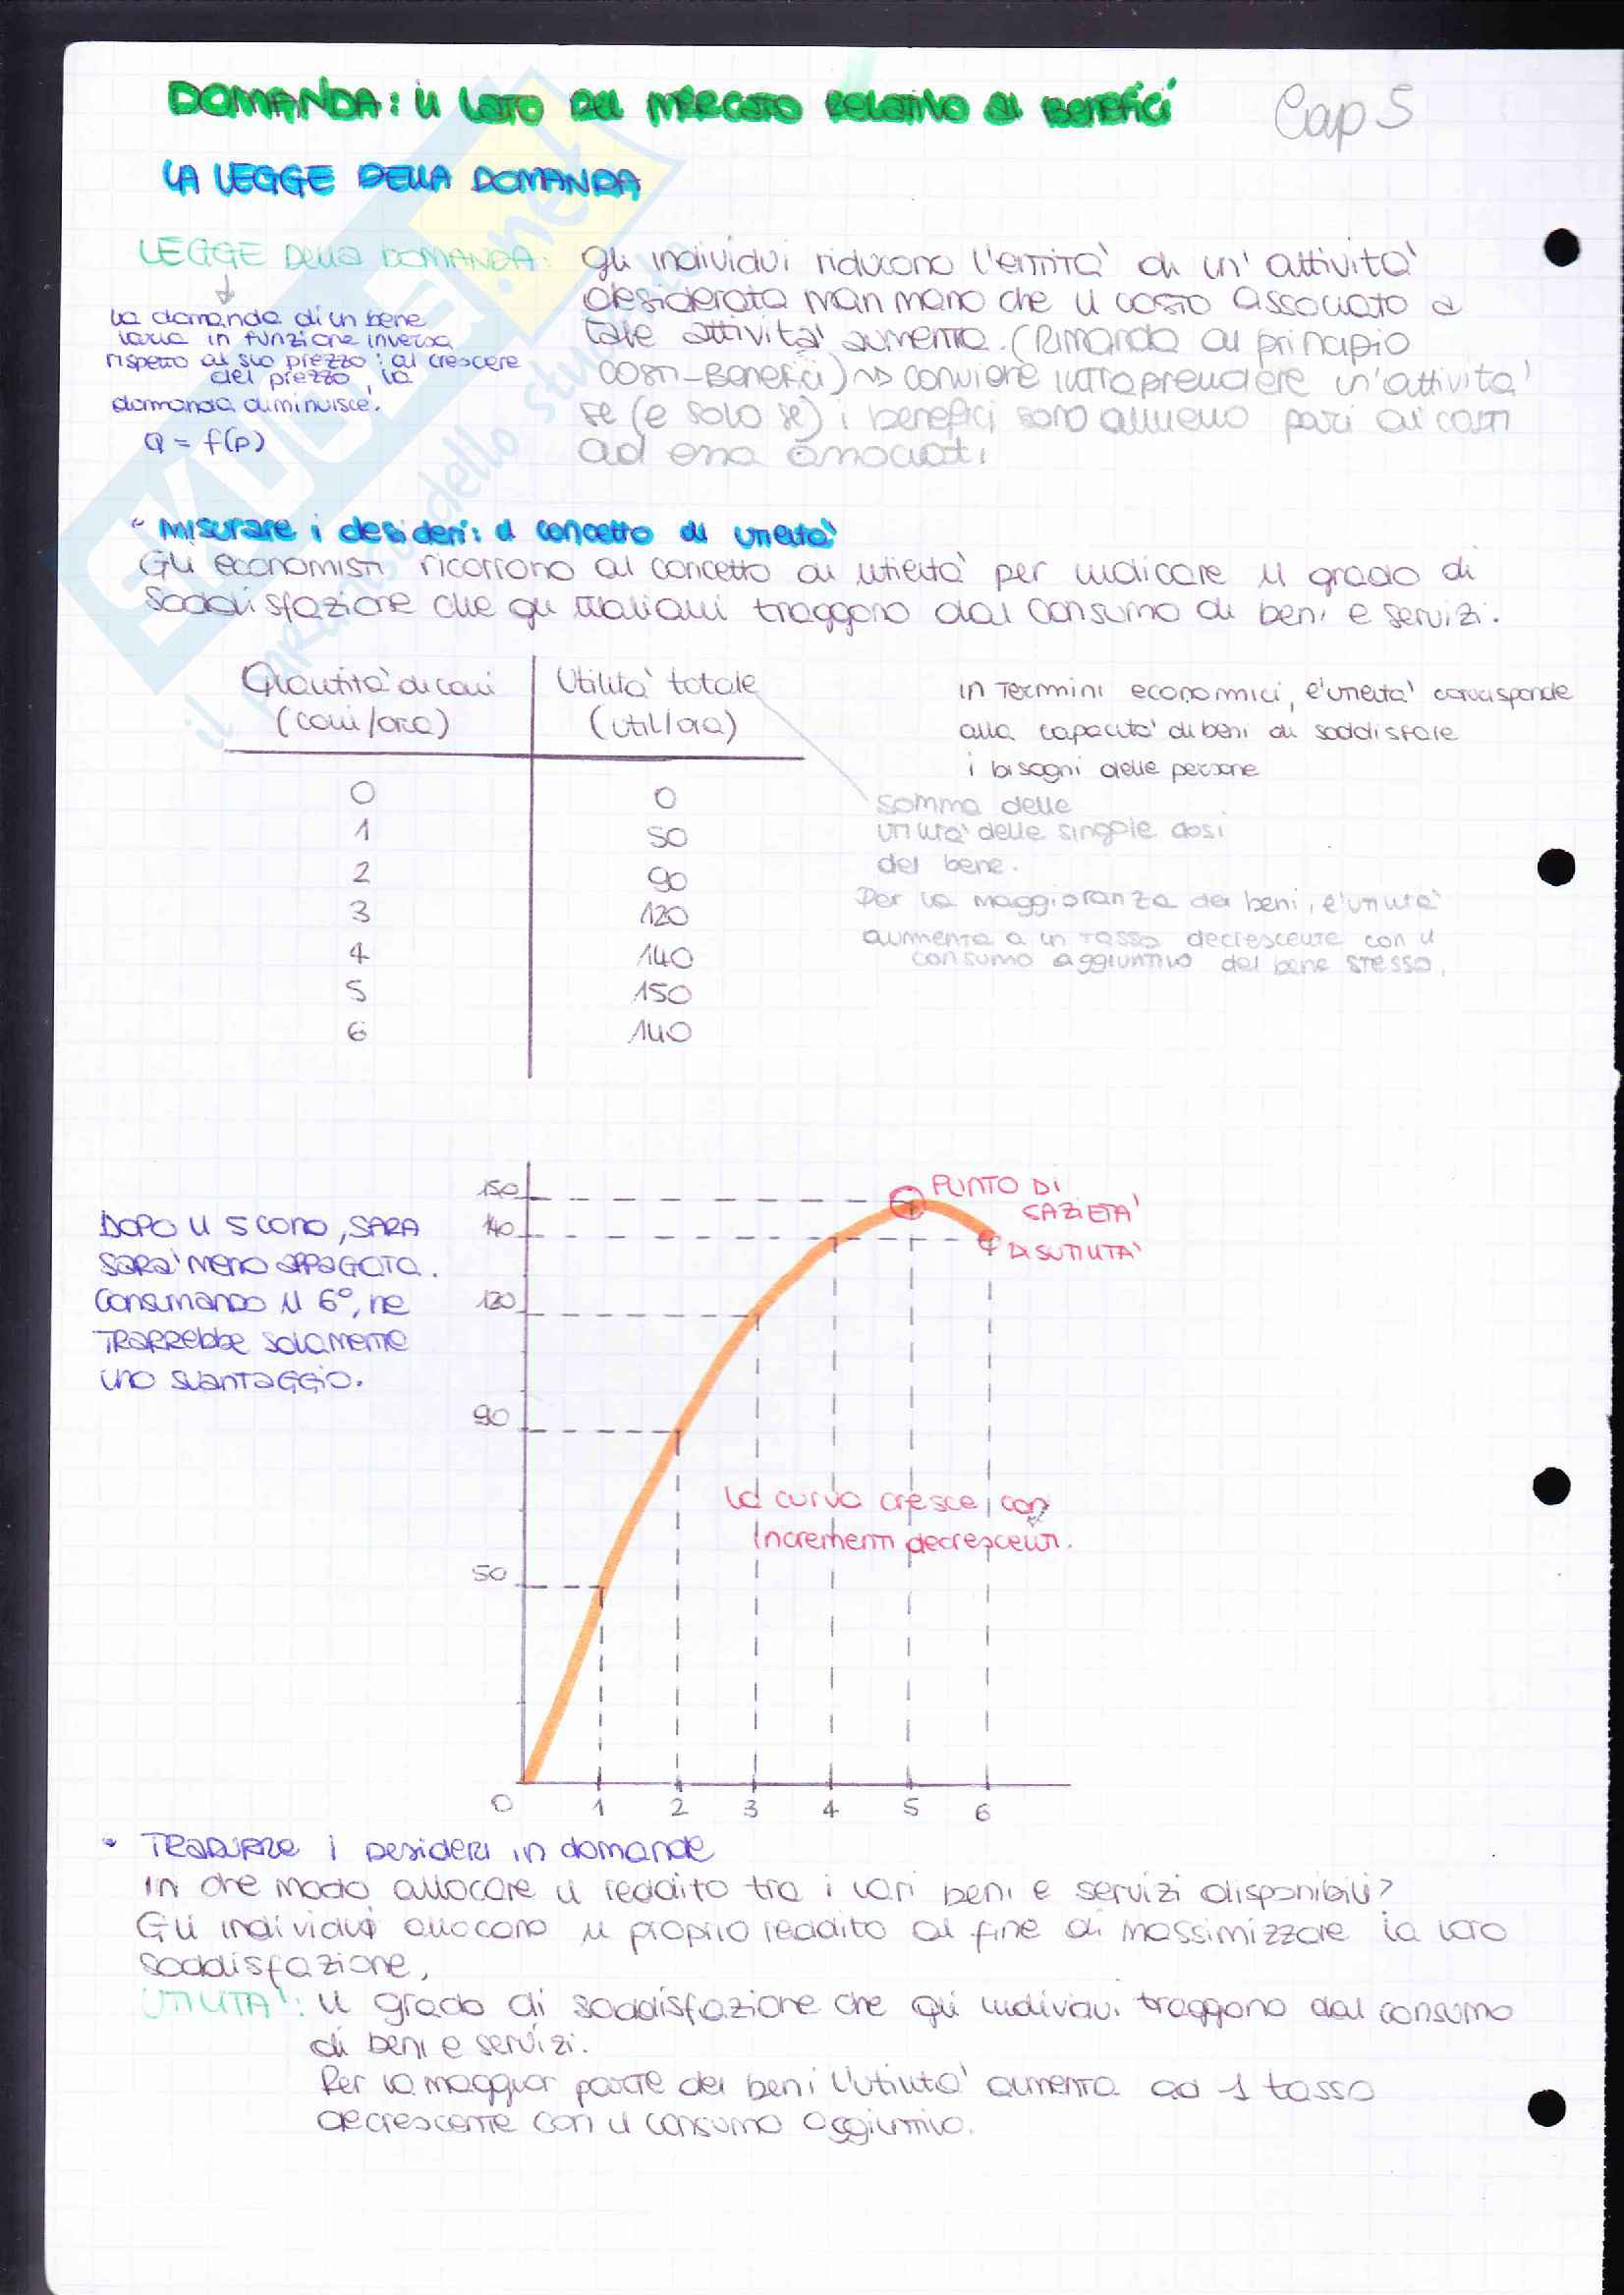 DOMANDA: il LATO DEL MERCATO RELATIVO AI BENEFICI
Cap 5
LA LEGGE DELLA DOMANDA
LEGGE DELLA DOMANDA:
la domanda di un bene
varia in funzione inversa
rispetto al suo prezzo: al crescere
del prezzo, la
domanda diminuisce.
Q = f(p)
gli individui riducono l'entità di un'attività
desiderata man mano che il costo associato a
tale attività aumenta. (Rimanda al principio
COSTI-BENEFICI) ~> conviene intraprendere un'attività
se (e solo se) i benefici sono almeno pari ai costi
ad essa associati
MISURARE i desideri: il concetto di utilità
Gli economisti ricorrono al concetto di utilità per indicare il grado di
soddisfazione che gli individui traggono dal consumo di beni e servizi.
Quantità di coni
(coni/ora)
Utilità totale
(util/ora)
0 0
1 50
2 90
3 120
4 140
5 150
6 140
in termini economici, l'utilità corrisponde
alla capacità di beni di soddisfare
i bisogni delle persone
somma delle
utilità delle singole dosi
del bene.
Per la maggioranza dei beni, l'utilità
aumenta a un tasso decrescente con il
consumo aggiuntivo del bene stesso.
DOPO il 5 cono, SARA
SARA' MENO APPAGATA.
Consumando il 6°, ne
TRARREBBE SOLAMENTE
UNO SVANTAGGIO.
150
140
120
90
50
0 1 2 3 4 5 6
PUNTO DI
SAZIETA'
DISUTILITA'
la curva cresce con
incrementi decrescenti.
• TRADURRE i DESIDERI in domande
In che modo allocare il reddito tra i vari beni e servizi disponibili?
Gli individui allocano il proprio reddito al fine di massimizzare la loro
soddisfazione,
UTILITA': il grado di soddisfazione che gli individui traggono dal consumo
di beni e servizi.
Per la maggior parte dei beni l'utilità aumenta ad 1 tasso
decrescente con il consumo aggiuntivo.
SKUOLA.net
il paradiso dello studente